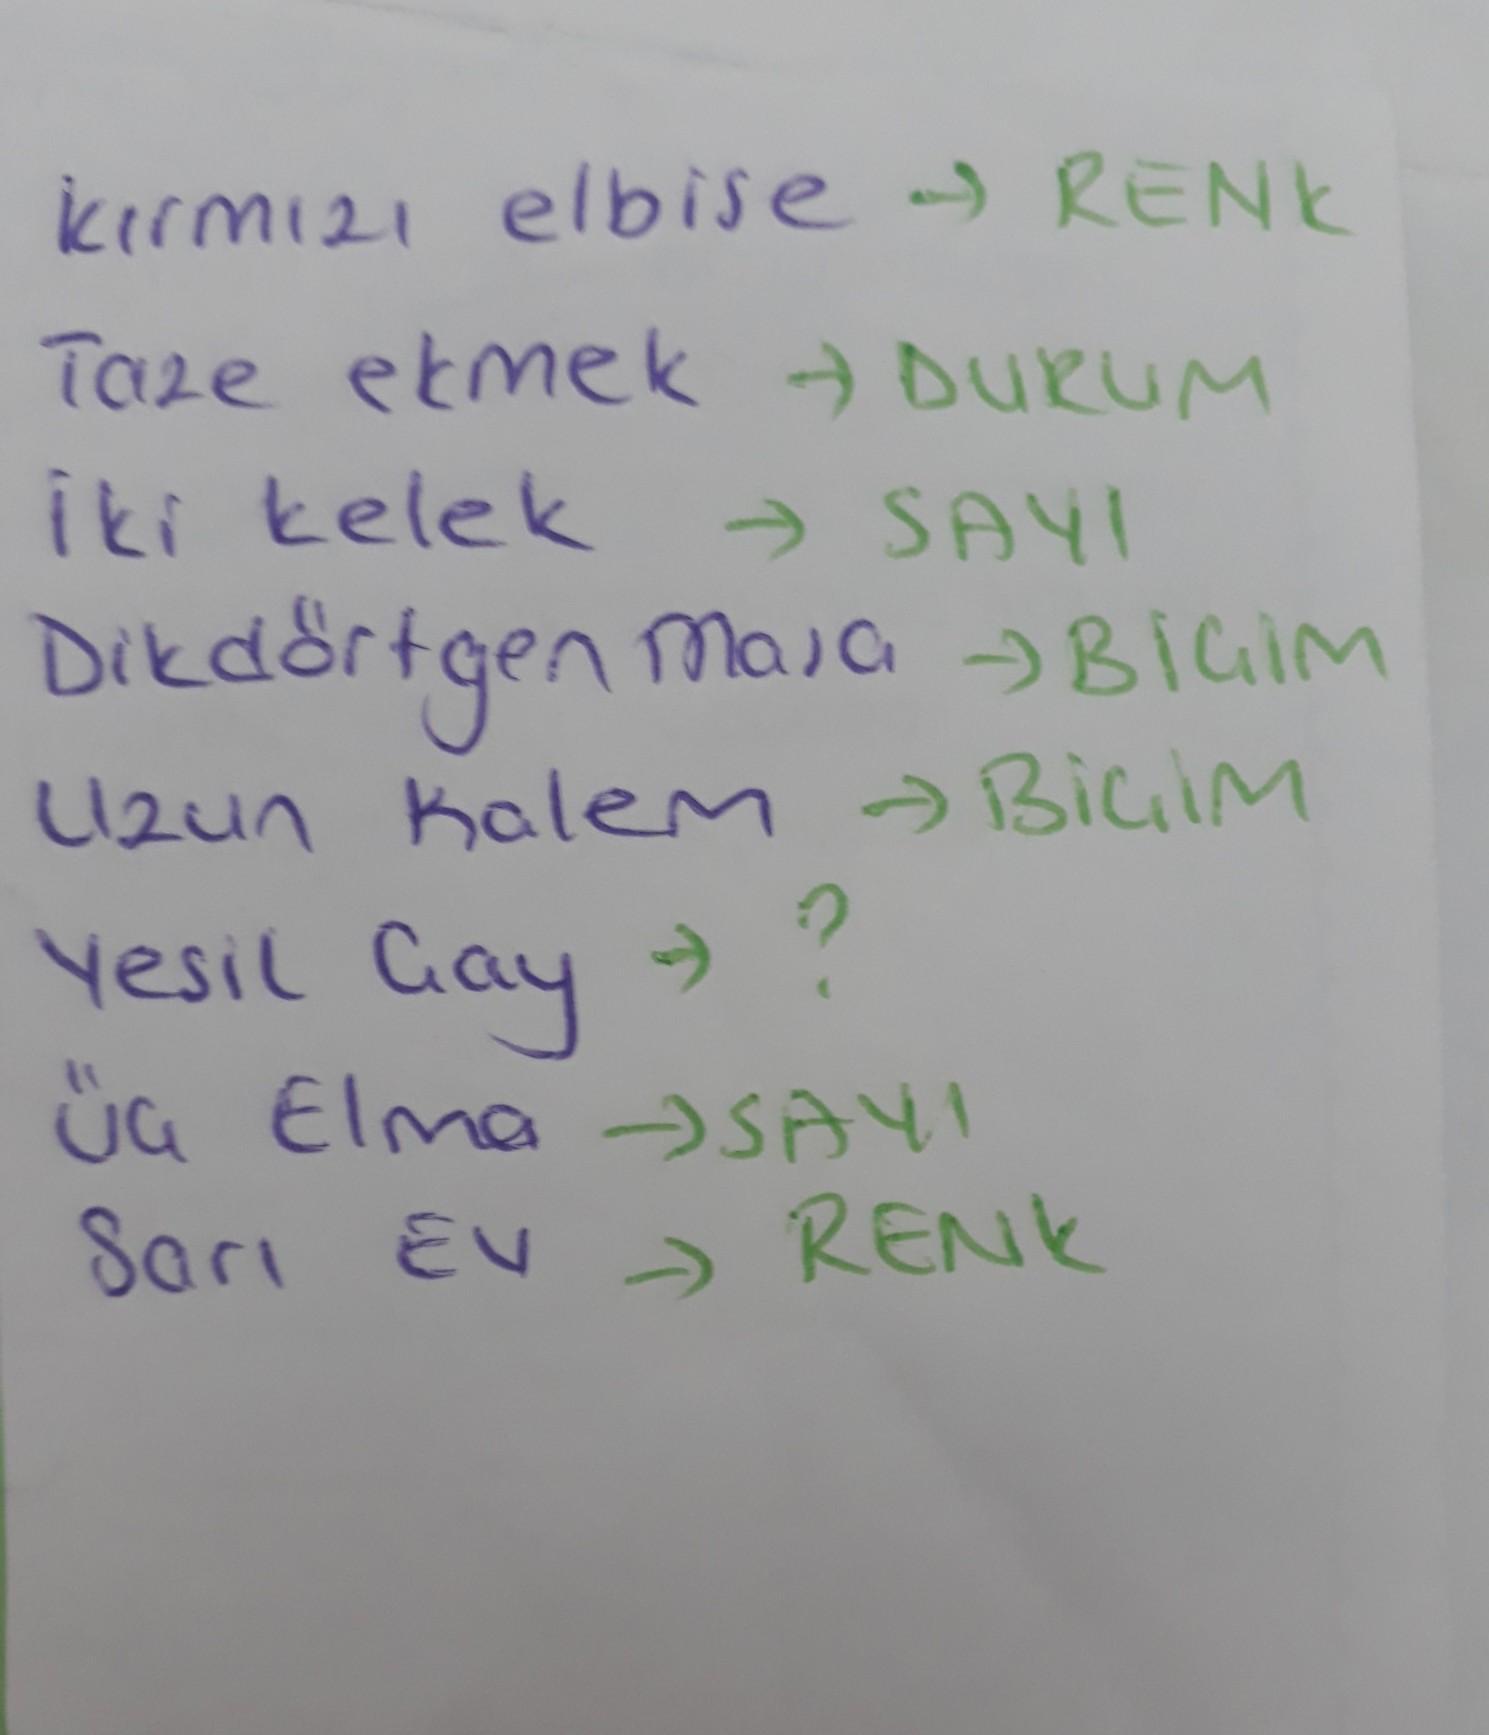 kırmızı elbise → RENK
Taze ekmek → DURUM
İki kelek → SAYI
Dikdörtgen Masa → BİÇİM
Uzun Kalem → BİÇİM
Yesil Çay → ?
Üç Elma → SAYI
Sarı Ev → RENK